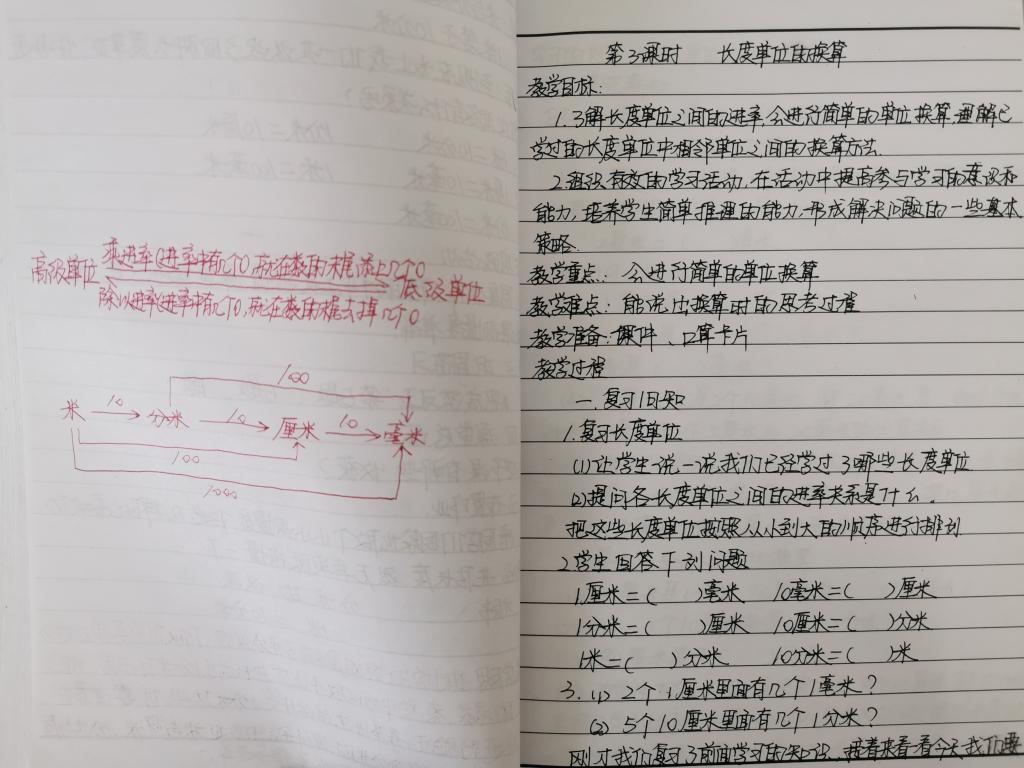 高级单位
乘进率(进率中有几个0,就在数的末尾添上几个0
低级单位
除以进率(进率中有几个0,就在数的末尾去掉几个0
100
米 10 分米 10 厘米 10 毫米
100
1000
第3课时 长度单位的换算
教学目标:
1.了解长度单位之间的进率,会进行简单的单位换算,理解已
学过的长度单位中相邻单位之间的换算方法.
2.组织有效的学习活动,在活动中提高参与学习的意识和
能力,培养学生简单推理的能力,形成解决问题的一些基本
策略.
教学重点: 会进行简单的单位换算
教学难点: 能说出换算时的思考过程
教学准备: 课件、口算卡片
教学过程
一.复习旧知
1.复习长度单位
(1)让学生说一说我们已经学过了哪些长度单位
(2)提问各长度单位之间的进率关系是什么.
把这些长度单位按照从小到大的顺序进行排列
2.学生回答下列问题
1厘米=( )毫米 10毫米=( )厘米
1分米=( )厘米 10厘米=( )分米
1米=( )分米 10分米=( )米
3.(1)2个1厘米里面有几个1毫米?
(2)5个10厘米里面有几个1分米?
刚才我们复习了前面学习的知识,接着来看看今天我们要